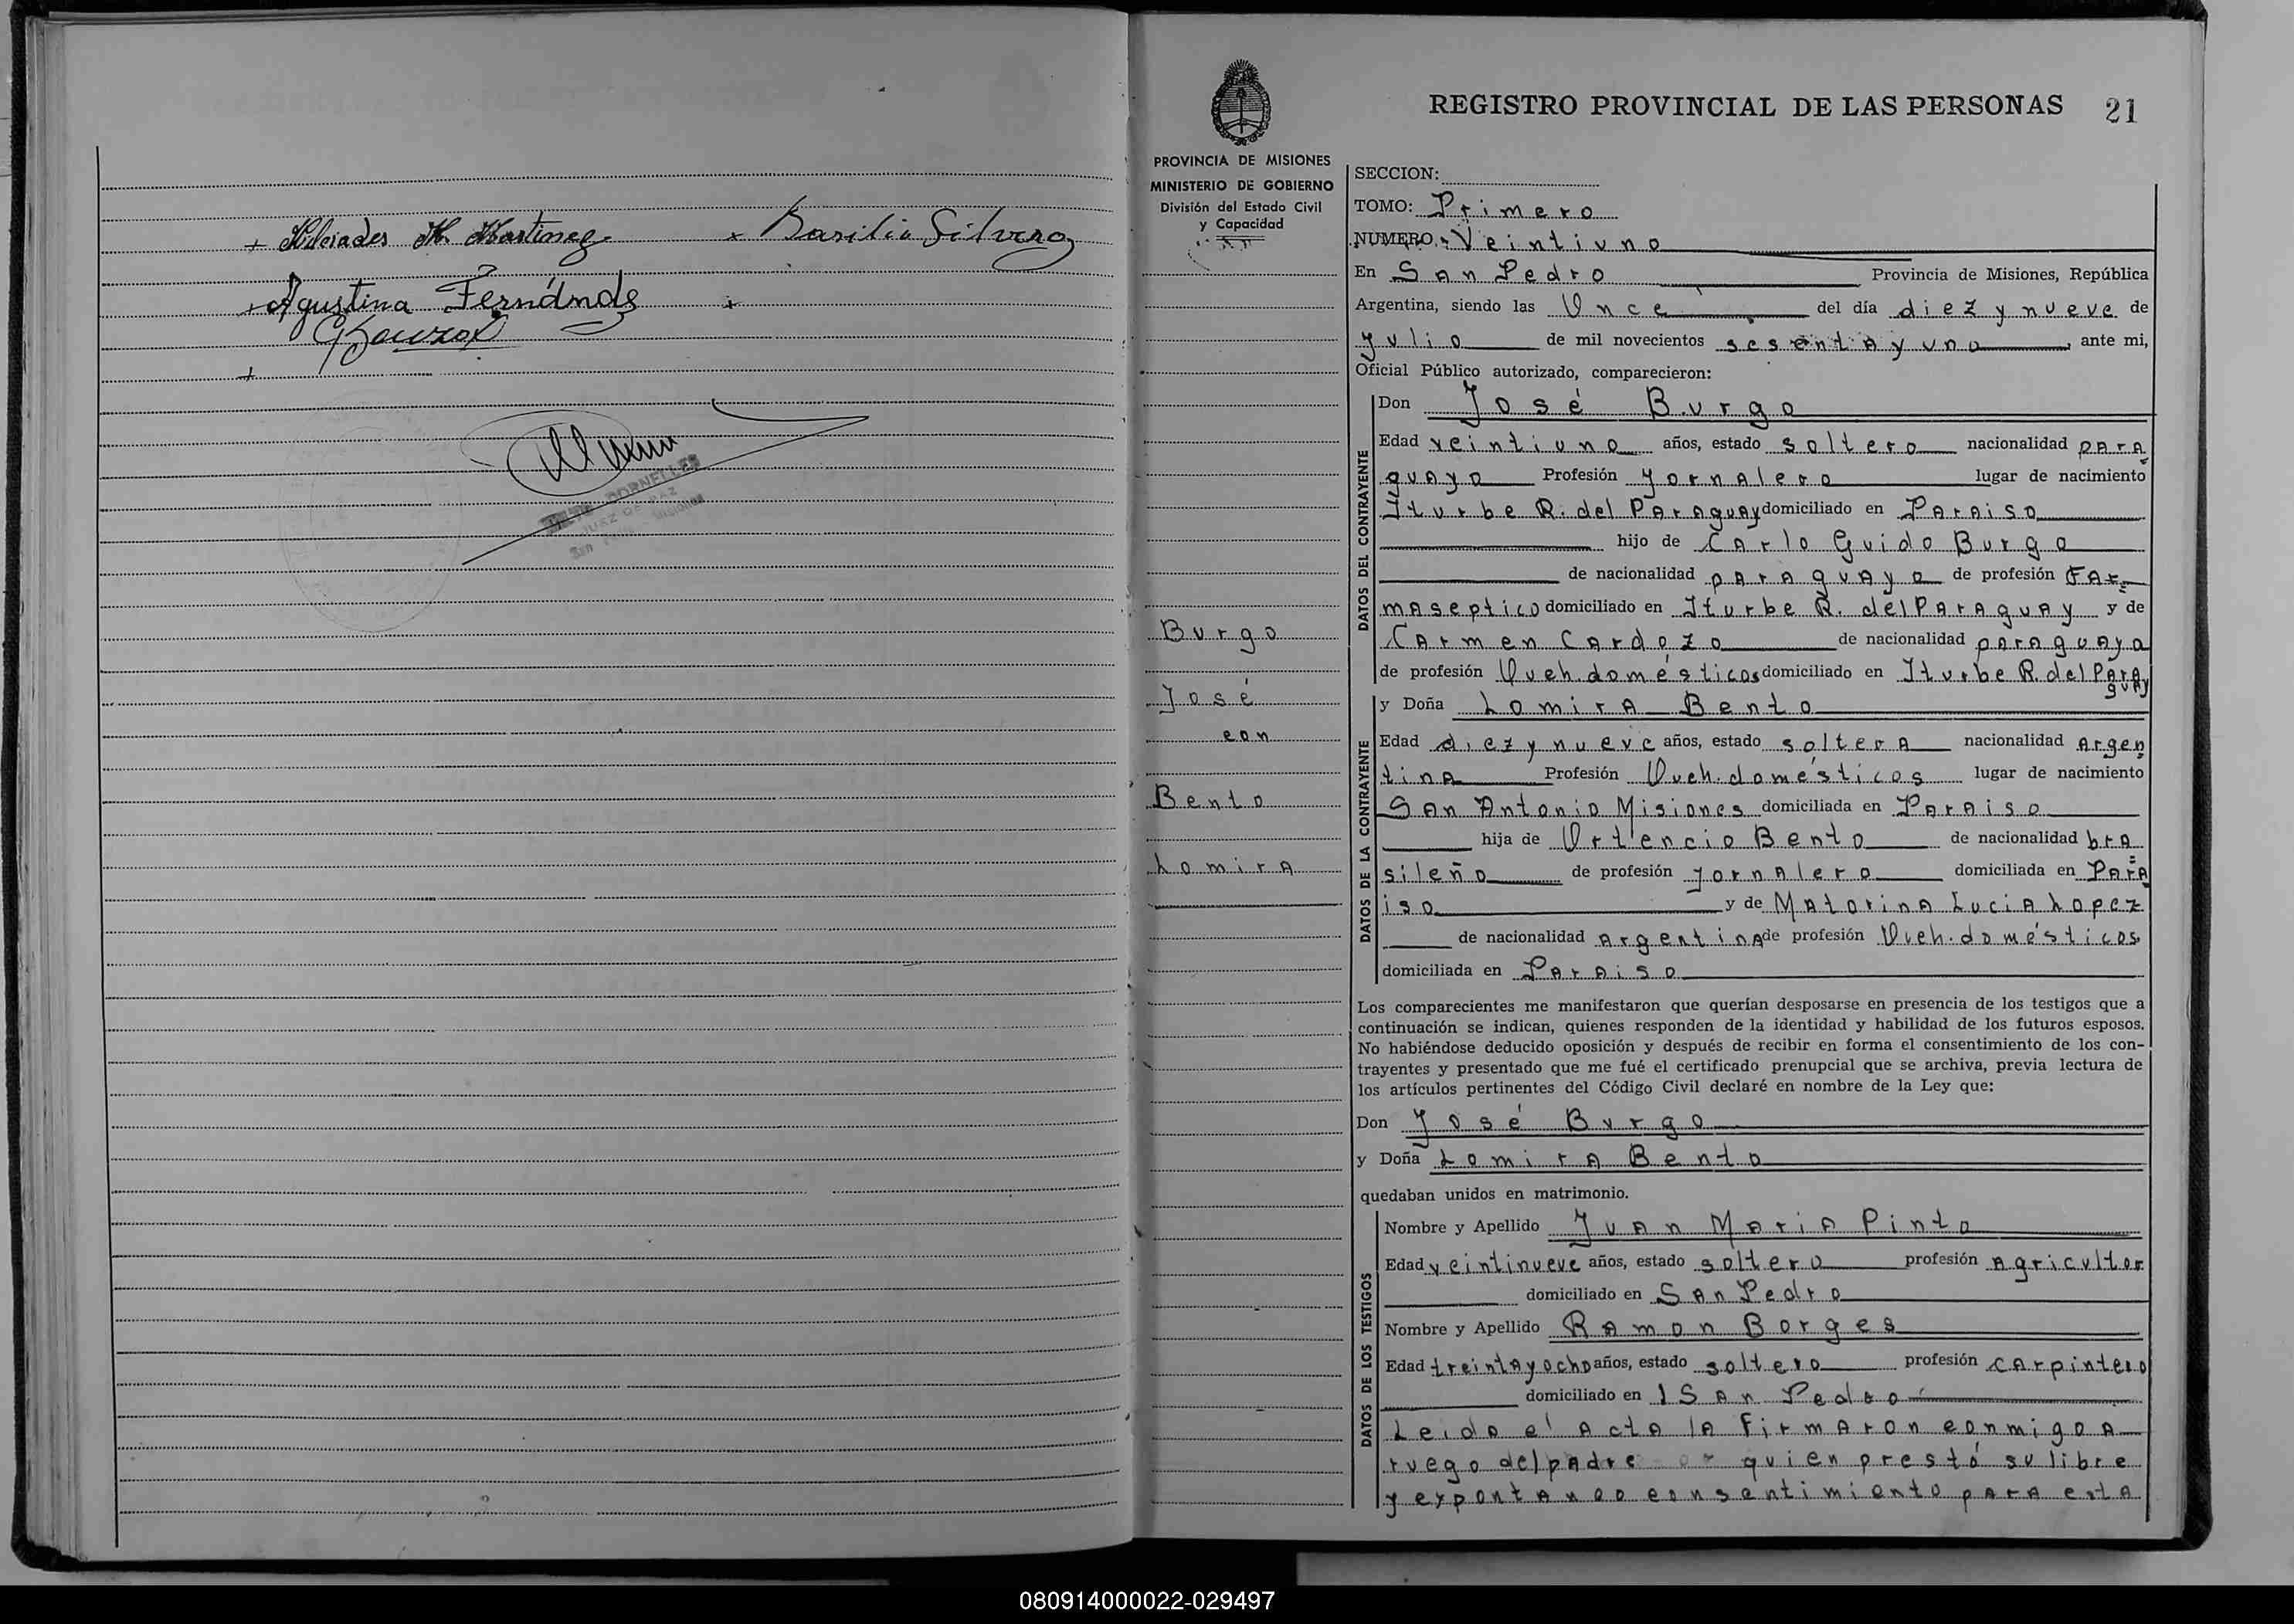 + Milciades M. Martinez
× Basilio Silvero
+ Agustina Fernández
+
+
CORNELLES
JUEZ DE PAZ
San Pedro - Misiones
PROVINCIA DE MISIONES
MINISTERIO DE GOBIERNO
División del Estado Civil
y Capacidad
Burgo
José
con
Bento
Lomira
REGISTRO PROVINCIAL DE LAS PERSONAS 21
SECCION:
TOMO: Primero
NUMERO: Veintiuno
En San Pedro Provincia de Misiones, República
Argentina, siendo las Once del día diez y nueve de
Julio de mil novecientos sesenta y uno, ante mi,
Oficial Público autorizado, comparecieron:
DATOS DEL CONTRAYENTE
Don José Burgo
Edad veintiuno años, estado soltero nacionalidad para
guayo Profesión jornalero lugar de nacimiento
Iturbe R. del Paraguay domiciliado en Paraiso
hijo de Carlo Guido Burgo
de nacionalidad paraguaya de profesión Far=
maseptico domiciliado en Iturbe R. del Paraguay y de
Carmen Cardozo de nacionalidad paraguaya
de profesión Queh. domésticos domiciliado en Iturbe R. del Paraguay
DATOS DE LA CONTRAYENTE
y Doña Lomira Bento
Edad diez y nueve años, estado soltera nacionalidad Argen
tina Profesión Queh. domésticos lugar de nacimiento
San Antonio Misiones domiciliada en Paraiso
hija de Ortencio Bento de nacionalidad bra=
sileño de profesión jornalero domiciliada en Para
iso y de Matorina Lucia Lopez
de nacionalidad argentina de profesión Queh. domésticos
domiciliada en Paraiso
Los comparecientes me manifestaron que querían desposarse en presencia de los testigos que a
continuación se indican, quienes responden de la identidad y habilidad de los futuros esposos.
No habiéndose deducido oposición y después de recibir en forma el consentimiento de los con-
trayentes y presentado que me fué el certificado prenupcial que se archiva, previa lectura de
los artículos pertinentes del Código Civil declaré en nombre de la Ley que:
Don José Burgo
y Doña Lomira Bento
quedaban unidos en matrimonio.
DATOS DE LOS TESTIGOS
Nombre y Apellido Juan Maria Pinto
Edad veintinueve años, estado soltero profesión agricultor
domiciliado en San Pedro
Nombre y Apellido Ramon Borges
Edad treinta y ocho años, estado soltero profesión carpintero
domiciliado en San Pedro
Leido el acta la firmaron conmigo a
ruego del padre quien prestó su libre
y expontaneo consentimiento para esta
080914000022-029497